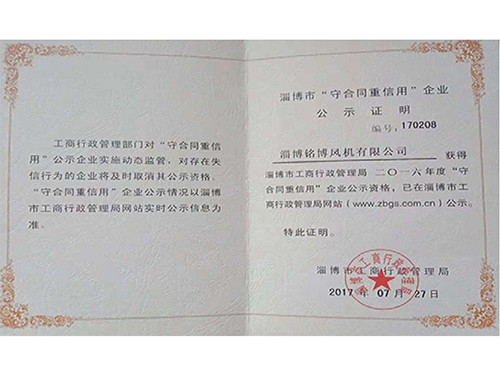 工商行政管理部门对“守合同重信
用”公示企业实施动态监管，对存在失
信行为的企业将及时取消其公示资格。
“守合同重信用”企业公示情况以淄博
市工商行政管理局网站实时公示信息为
准。
淄博市“守合同重信用”企业
公示证明
编号:170208
淄博铭博风机有限公司 获得
淄博市工商行政管理局 二〇一六年度“守
合同重信用”企业公示资格，已在淄博市工
商行政管理局网站（www.zbgs.com.cn）公示。
特此证明。
淄博市工商行政管理局
2017 年 07 月 27日
淄博市工商行政管理局